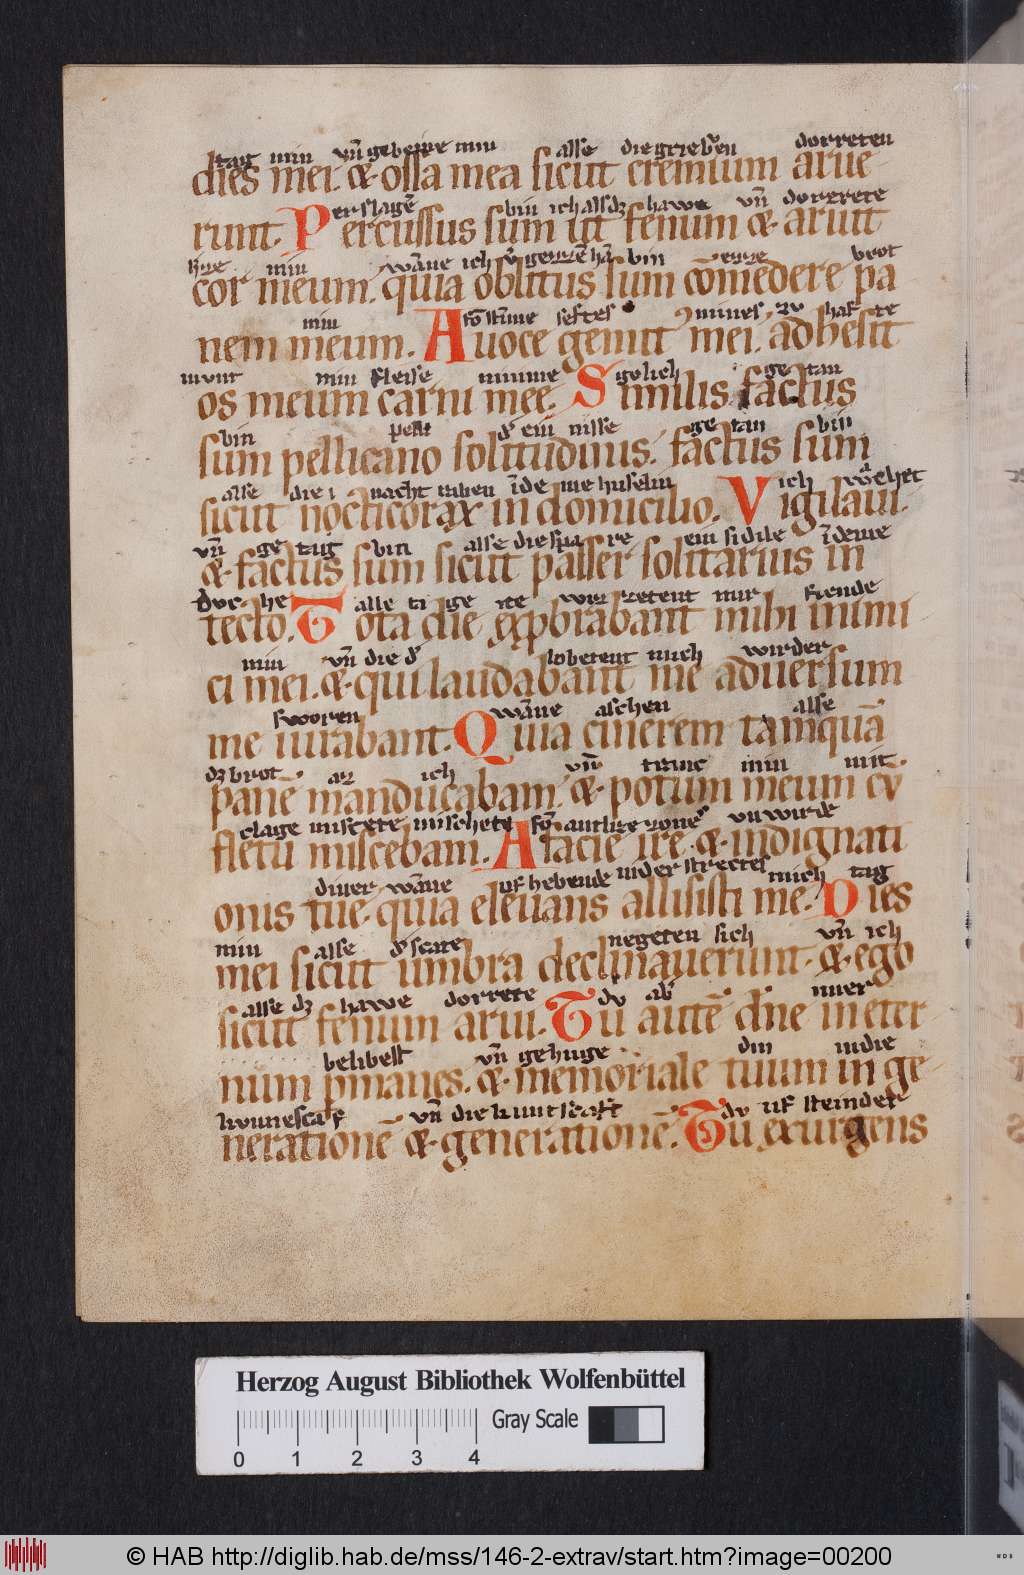 tag min vñ gebeine min alse die grieben dorreten
dies mei. & ossa mea sicut cremium arue
erslagē bin ich alse dz hawe vñ dorrete
runt. Percussus sum ut fenum & aruit
min wāne ich bin brot
cor meum. quia oblitus sum cōmedere pa
min stīme
nem meum. A uoce gemitꝰ mei. adhesit
munt min fleise minme gelich ge tan
os meum carni mee. Similis factus
bin ein nisse ge tan bin
sum pellicano solitudinis. factus sum
alse die nacht raben ī deme huselin ich
sicut nocticorax in domicilio. Vigilaui.
vñ ge tag bin alse die spa re ein sidile ī deme
& factus sum sicut passer solitarius in
alle ta ge mir fiende
tecto. Tota die exprobrabant mihi inimi
min vñ die lobetent mich wirder
ci mei. & qui laudabant me aduersum
sworen wāne aschen alse
me iurabant. Quia cinerem tamquā
dz brot az ich vñ tranc min mit
panē manducabam. & potum meum cū
clage miscete mischete antlize zornes vñ wirde
fletu miscebam. A facie ire & indignati
diner wāne uf hebende nider strectes mich tag
onis tue. quia eleuans allisisti me. Dies
min alse scate negeten sich vñ ich
mei sicut umbra declinauerunt. & ego
alse dz hawe dorrete du
sicut fenum arui. Tu autē dn̄e in eter
belibest vñ gehuge din in die
num pmanes. & memoriale tuum in ge
kunnescaf vñ die kuntscaft du uf steinder
nerationē & generationē. Tu exurgens
Herzog August Bibliothek Wolfenbüttel
Gray Scale
0 1 2 3 4
© HAB http://diglib.hab.de/mss/146-2-extrav/start.htm?image=00200